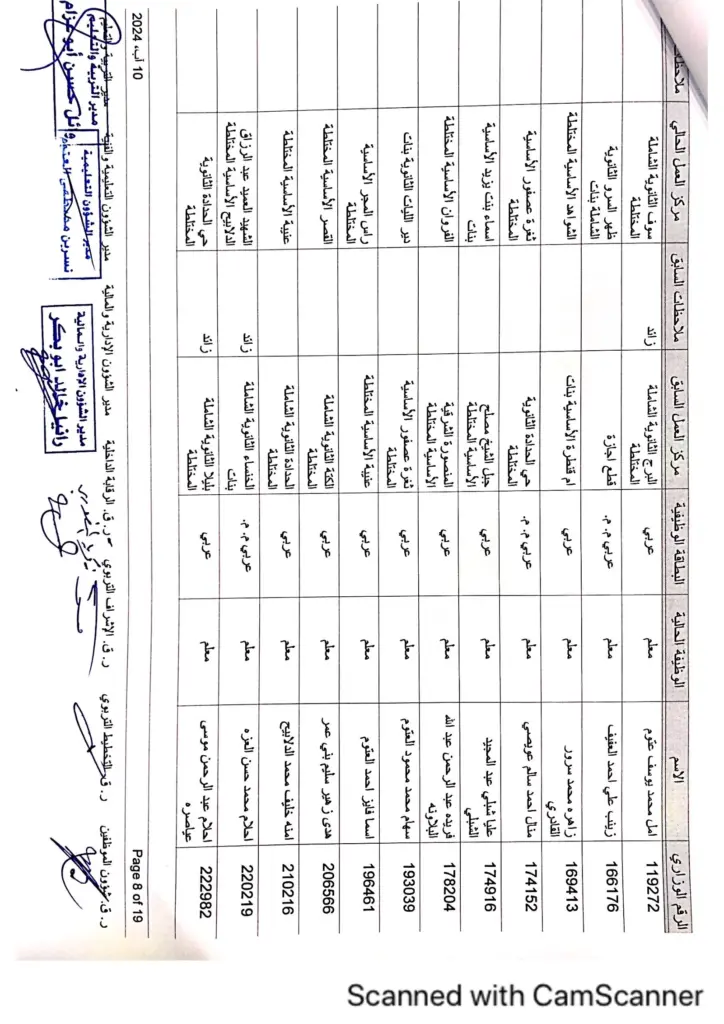 الرقم الوزاري الاسم الوظيفة الحالية البطاقة الوظيفية مركز العمل السابق ملاحظات السابق مركز العمل الحالي ملاحظات
119272 امل محمد يوسف عتوم معلم عربي البرج الثانوية الشاملة المختلطة زائد سوف الثانوية الشاملة المختلطة
166176 زينب علي احمد العفيف معلم عربي م. م. قطع اجازة ظهر السرو الثانوية الشاملة بنات
169413 زاهره محمد سرور القادري معلم عربي ام قنطرة الأساسية بنات الشواهد الأساسية المختلطة
174152 منال احمد سالم عويصي معلم عربي م. م. حي الحدادة الثانوية المختلطة ثغرة عصفور الأساسية المختلطة
174916 عليا شبلي عبد المجيد الشبلي معلم عربي جبل الشيخ مصلح الأساسية المختلطة اسماء بنت يزيد الأساسية بنات
178204 فريده عبد الرحمن عبد الله البلاونه معلم عربي المنصورة الشرقية الأساسية المختلطة القروان الأساسية المختلطة
193039 سهام محمد محمود العتوم معلم عربي ثغرة عصفور الأساسية المختلطة دير الليات الثانوية بنات
196461 اسما فايز احمد العتوم معلم عربي عنيبة الأساسية المختلطة راس المجر الأساسية المختلطة
206566 هدى زهير سليم بني عمر معلم عربي الكتة الثانوية الشاملة المختلطة القصر الأساسية المختلطة
210216 امنه خليف محمد الدلابيح معلم عربي الحدادة الثانوية الشاملة المختلطة عنيبة الأساسية المختلطة
220219 احلام محمد حسن العزه معلم عربي م. م. الخنساء الثانوية الشاملة بنات زائد الشهيد العميد عبد الرزاق الدلابيح الأساسية المختلطة
222982 احلام عبد الرحمن موسى عياصره معلم عربي بليلا الثانوية الشاملة المختلطة زائد حي الحدادة الثانوية المختلطة
Page 8 of 19
10 آب، 2024
ر. ق. شؤون الموظفين ر. ق. التخطيط التربوي ر. ق. الإشراف التربوي ر. ق. الرقابة الداخلية مدير الشؤون الإدارية والمالية مدير الشؤون التعليمية والفنية مدير التربية والتعليم
مدير الشؤون الإدارية والمالية
رانيا خالد ابو بكر
مدير الشؤون التعليمية
نسرين مصطفى العتوم
مدير التربية والتعليم
وائل حسن أبو عزام
Scanned with CamScanner